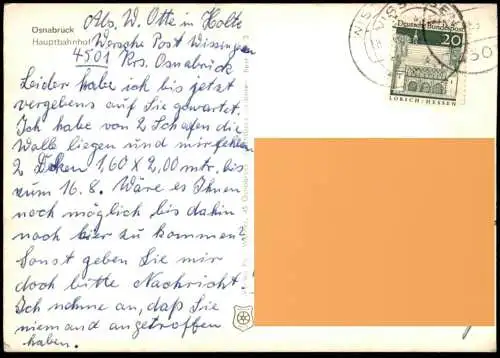 Osnabrück
Hauptbahnhof
Abs. W. Otte in Holte
Wersche Post Wissingen
4501 Krs. Osnabrück
Leider habe ich bis jetzt
vergebens auf Sie gewartet.
Ich habe von 2 Schafen die
Wolle liegen und mir fehlen
2 Decken 1,60 X 2,00 mtr. bis
zum 16. 8. Wäre es Ihnen
noch möglich bis dahin
noch hier zu kommen?
Sonst geben Sie mir
doch bitte Nachricht.
Ich nehme an, daß Sie
niemand angetroffen
haben.
Deutsche Bundespost
20
LORSCH/HESSEN